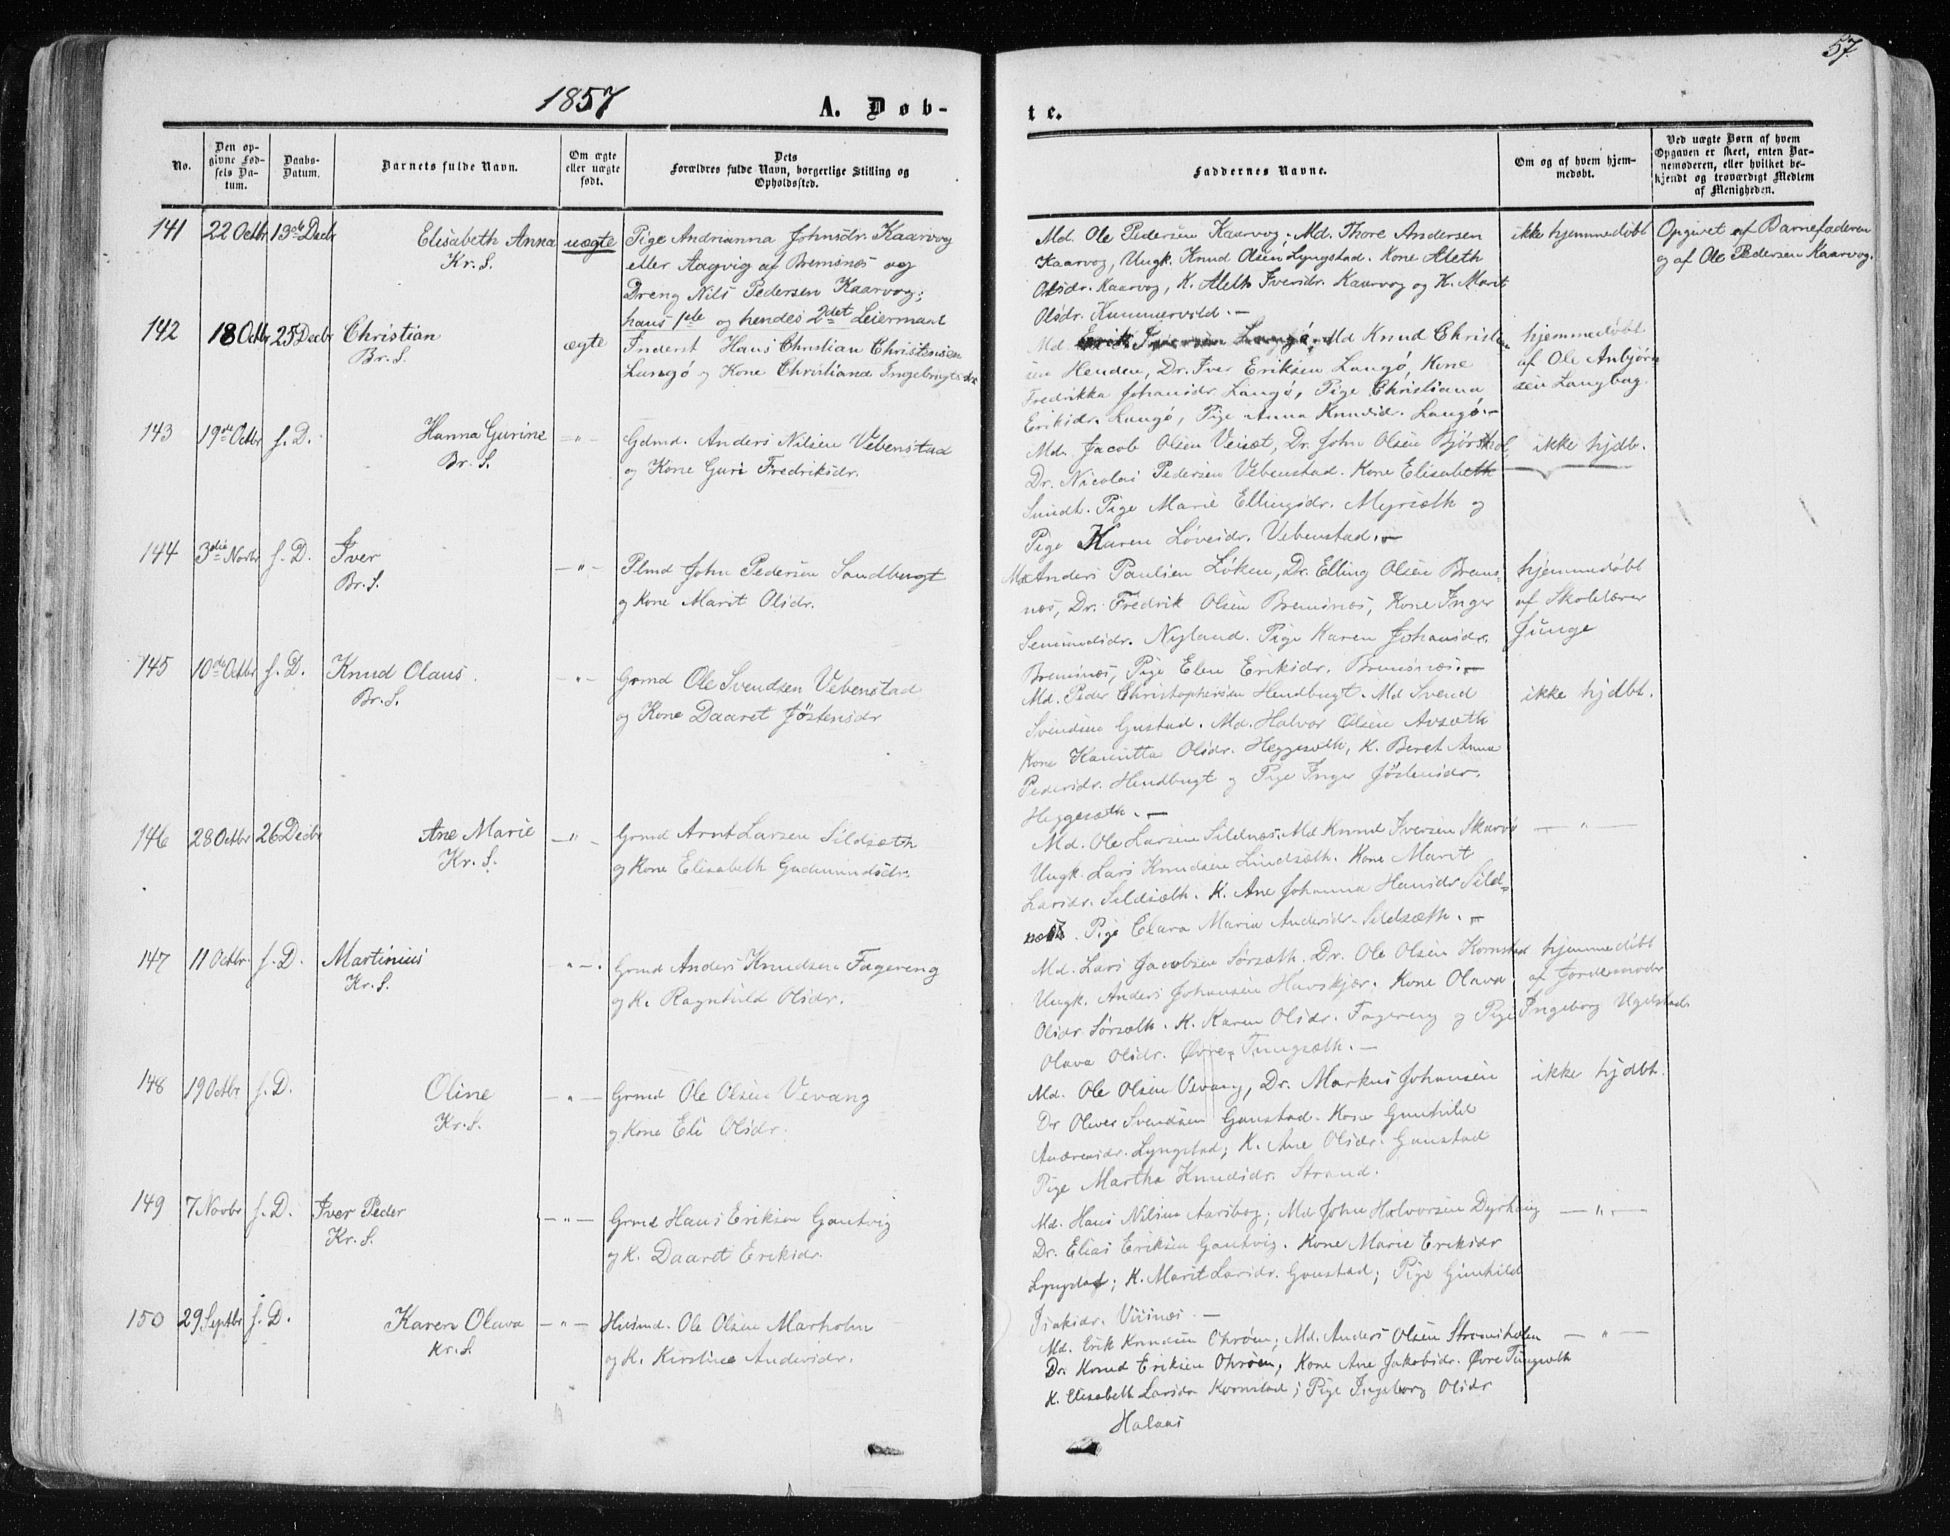 57
1857 A. Døb-
te.
No.
Den opgivne Fødsels Datum.
Daabs-Datum.
Barnets fulde Navn.
Om ægte eller uægte født.
Dets Forældres fulde Navn, borgerlige Stilling og Opholdssted.
Faddernes Navne.
Om og af hvem hjemmedøbt.
Ved uægte Børn af hvem Opgaven er skeet, enten Barnemoderen, eller hvilket bekjendt og troværdigt Medlem af Menigheden.
141 22 Octbr 13de Decbr Elisabeth Anna uægte Pige Andrianna Johnsdr. Kaarvog
Kr. S. eller Aagvig af Bremsnes og
Dreng Nils Pedersen Kaarvog;
hans 1ste og hendes 2det Leiermaal
Md. Ole Pedersen Kaarvog, Md. Thore Andersen
Kaarvog, Ungk. Knud Olsen Lyngstad. Kone Aleth
Olsdr. Kaarvog, K. Aleth Iversdr. Kaarvog og K. Marit
Olsdr. Kummervold. —
ikke hjemmedøbt
Opgivet af Barnefaderen
og af Ole Pedersen Kaarvog.
142 18 Octbr 25 Decbr Christian ægte Inderst Hans Christian Christensen
Br. S. Langø og Kone Christiand Ingebrigtsdr
Md. Erik Iversen Langø, Md Knud Christen
sen Henden, Dr. Iver Eriksen Langø, Kone
Fredrikka Johansdr. Langø, Pige Christiana
Eriksdr. Langø, Pige Anna Knudsdr. Langø. —
hjemmedøbt
af Ole Anbjørn
sen Langbog.
143 19de Octbr s. D. Hanna Gurine — " — Gdmd. Anders Nilsen Vebenstad
Br. S. og Kone Guri Fredriksdr.
Md. Jacob Olsen Veisæt, Dr. John Olsen
Dr. Nicolai Pedersen Vebenstad. Kone Elisabeth
Sundt. Pige Marie Ellingsdr. Myrsæth og
Pige Karen Løvesdr. Vebenstad. —
ikke hjdb.
144 3die Novbr s. D. Iver — " — Plmd John Pedersen Sandbugt
Br. S. og Kone Marit Olsdr.
Md Anders Paulsen Løken, Dr. Elling Olsen Brems-
nes, Dr. Fredrik Olsen Bremsnes, Kone Inger
Semundsdr. Nyland. Pige Karen Johansdr.
Bremsnes, Pige Elen Eriksdr. Bremsnes. —
hjemmedøbt
af Skolelærer
Junge
145 10de Octbr s. D. Knud Olaus — " — Grmd Ole Svendsen Vebenstad
Br. S. og Kone Daaret Jøstensdr
Md. Peder Christophersen Hendbugt. Md Svend
Svendsen Gustad. Md. Halvor Olsen Avsæth
Kone Olsdr. Heggesæth, K. Beret Anna
Pedersdr. Hendbugt og Pige Inger Jøstensdr.
Heggesæth. —
ikke hjdbt.
146 28 Octbr 26 Decbr Ane Marie — " — Grmd Arnt Larsen Sildsæth
Kr. S. og Kone Elisabeth Gudmundsdr.
Md. Ole Larsen Sildnes, Md Knud Iversen Skarvø
Ungk. Lars Knudsen Lindsæth. Kone Marit
Larsdr. Sildsæth. K. Ane Johanna Hansdr Sild-
Pige Clara Maria Andersdr. Sildsæth. —
— " —
147 11 Octbr. s. D. Martinius — " — Grmd Anders Knudsen Fagereng
Kr. S. og K. Ragnhild Olsdr.
Md. Lars Jacobsen Sørsæth. Dr. Ole Olsen Kornstad
Ungk. Anders Johansen Havskjær. Kone Olava
Olsdr Sørsæth. K. Karen Olsdr. Fagereng og Pige
Olava Olsdr. Øvre Tungsæth. —
hjemmedøbt
af Jordemoder
Ingeborg Ugelstad
148 19 Octbr s. D. Oline — " — Grmd Ole Olsen Vevang
Kr. S. og Kone Eli Olsdr.
Md. Ole Olsen Vevang, Dr. Markus Johansen
Dr Oliver Svendsen Gaustad. Kone Gunhild
Andersdr. Lyngstad; K. Ane Olsdr. Gaustad
Pige Martha Knudsdr. Strand.
ikke hjdbt.
149 7 Novbr s. D. Iver Peder — " — Grmd Hans Eriksen Gautvig
Kr. S. og K. Daaret Eriksdr.
Md. Hans Nilsen Aarsbog; Md John Halvorsen Dyrhaug
Dr. Elias Eriksen Gautvig. Kone Marie Eriksdr
K. Marit Larsdr. Gaustad; Pige Gunhild
Isaksdr. —
— " —
150 29 Septbr s. D. Karen Olava — " — Husmd. Ole Olsen Marholm
Kr. S. og K. Kirstine Andersdr.
Md. Erik Knudsen Ohrøen; Md. Anders Olsen Strømsholm
Dr. Knud Eriksen Ohrøen, Kone Ane Jakobsdr. Øvre Tungsæth
K. Elisabeth Larsdr Kornstad; Pige Ingeborg Olsdr
Halaas
— " —